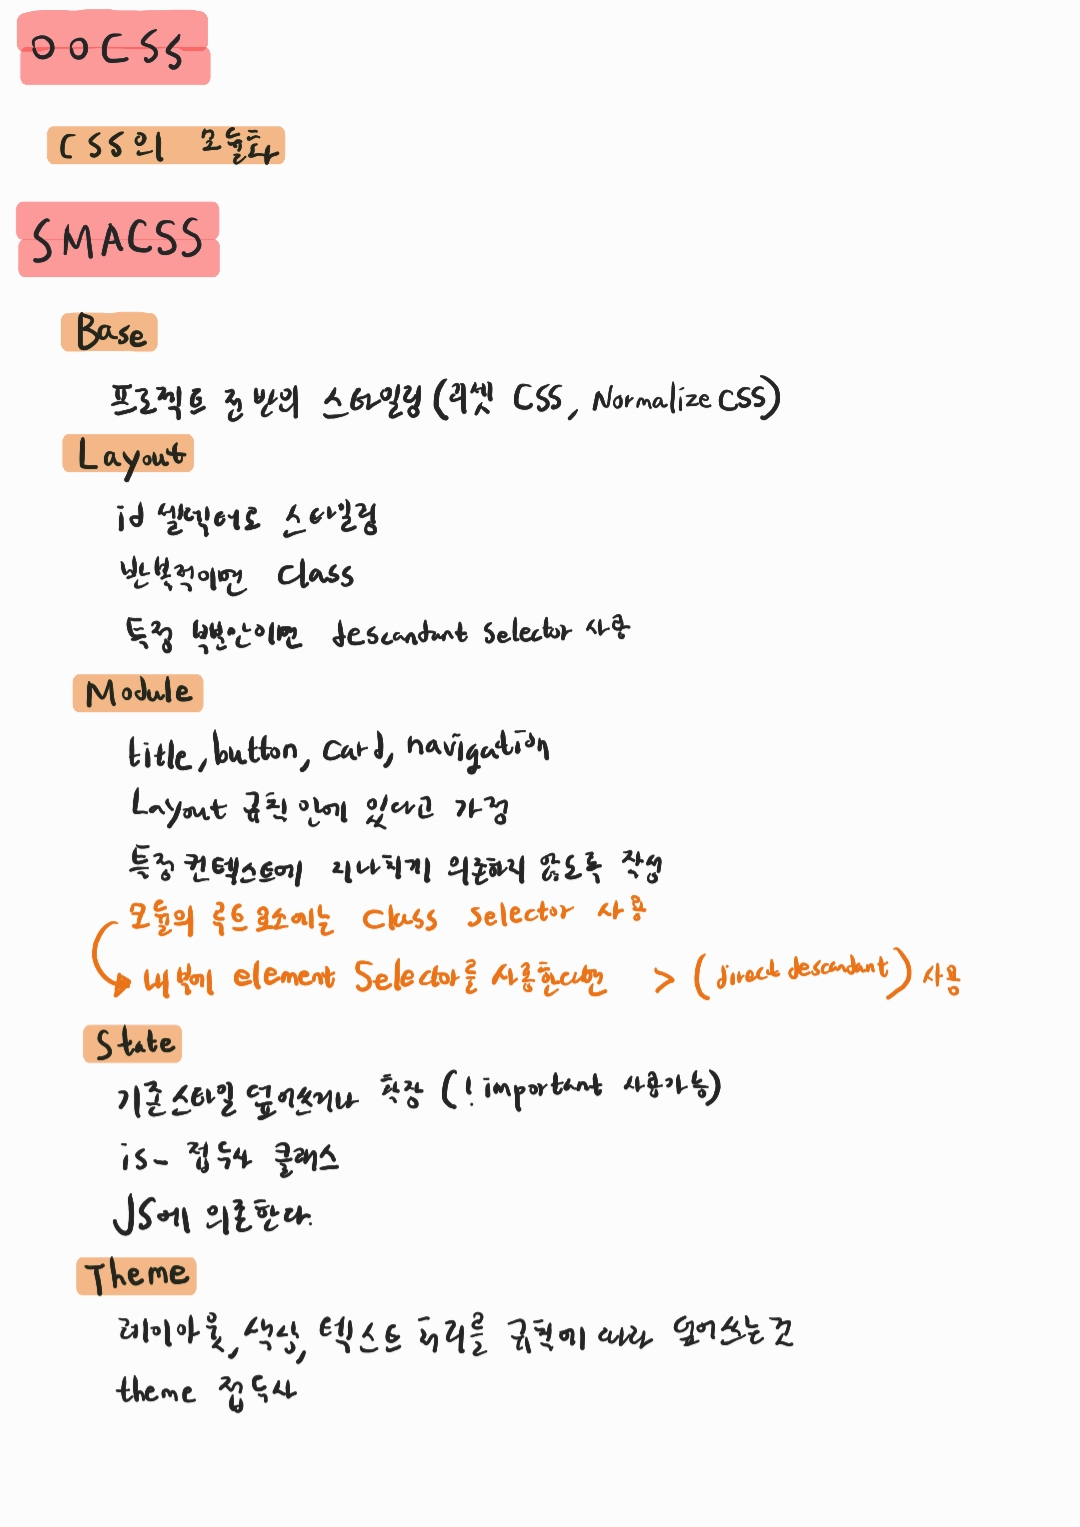 OOCSS
CSS의 모듈화
SMACSS
Base
프로젝트 전반의 스타일링 (리셋 CSS, Normalize CSS)
Layout
id 셀렉터로 스타일링
반복적이면 Class
특정 부분안이면 descandant selector 사용
Module
title, button, card, navigation
Layout 규칙 안에 있다고 가정
특정 컨텍스트에 지나치게 의존하지 않도록 작성
모듈의 루트 요소에는 Class selector 사용
내부에 element Selector를 사용한다면 > (direct descandant) 사용
State
기존 스타일 덮어쓰거나 확장 (!important 사용가능)
is- 접두사 클래스
JS에 의존한다.
Theme
레이아웃, 색상, 텍스트 처리를 규칙에 따라 덮어쓰는 것
theme 접두사